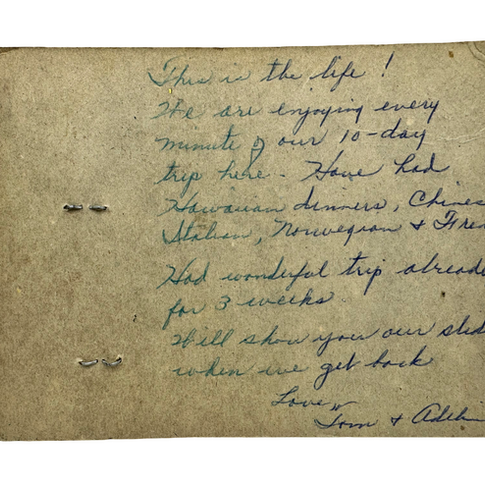 This is the life!
We are enjoying every
minute of our 10-day
trip here - Have had
Hawaiian dinners, Chines
Italian, Norwegian & Fren
Had wonderful trip already
for 3 weeks.
Will show you our slid
when we get back
Love,,
Tom &